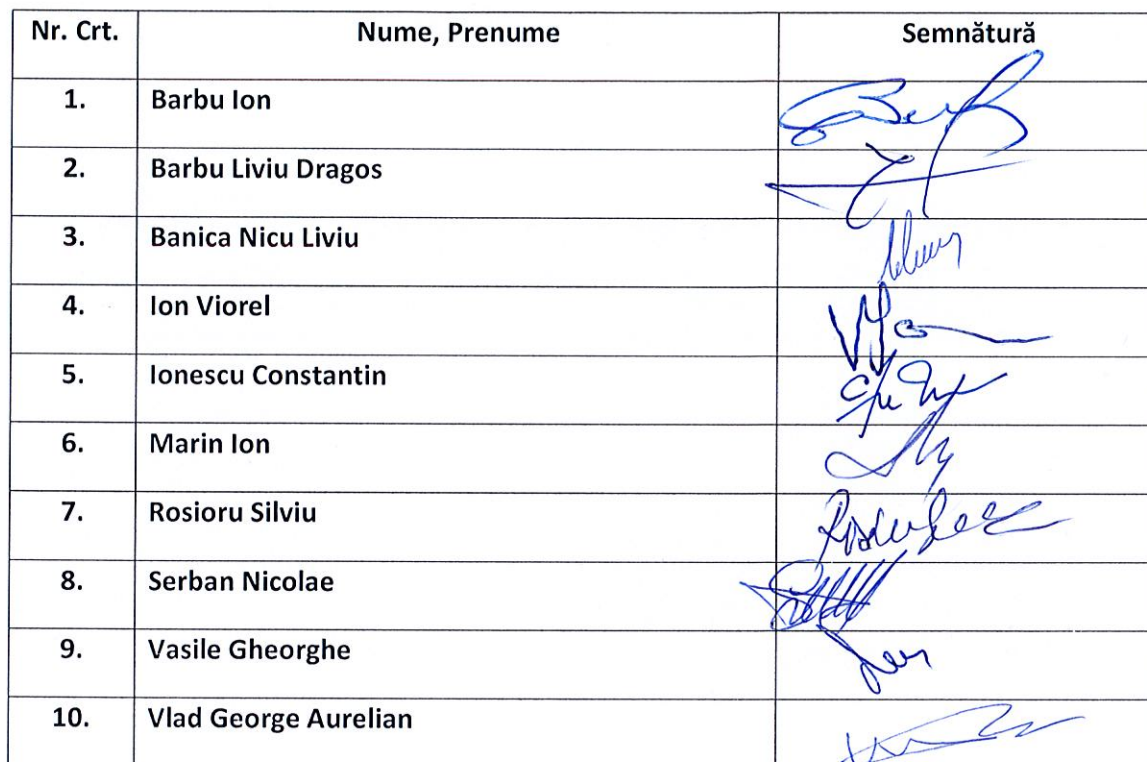 Nr. Crt. Nume, Prenume Semnătură
1. Barbu Ion
2. Barbu Liviu Dragos
3. Banica Nicu Liviu
4. Ion Viorel
5. Ionescu Constantin
6. Marin Ion
7. Rosioru Silviu
8. Serban Nicolae
9. Vasile Gheorghe
10. Vlad George Aurelian